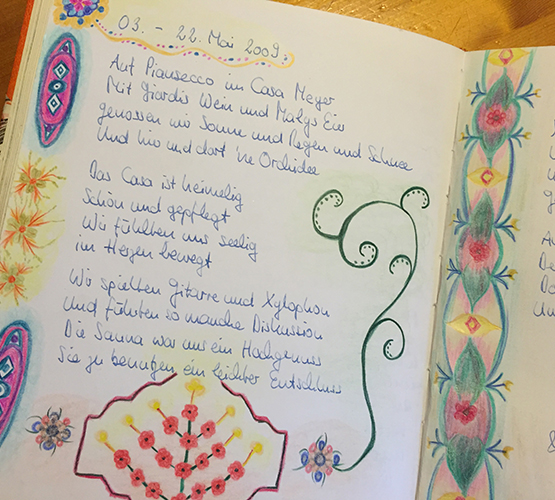 03. - 22. Mai 2009
Auf Piansecco im Casa Meyer
Mit Giardis Wein und Malys Eier
genossen wir Sonne und Regen und Schnee
Und hie und dort 'ne Orchidee
Das Casa ist heimelig
Schön und gepflegt
Wir fühlten uns seelig
im Herzen bewegt
Wir spielten Gitarre und Xylophon
Und führten so manche Diskussion
Die Sauna war uns ein Hochgenuss
Sie zu benutzen ein leichter Entschluss